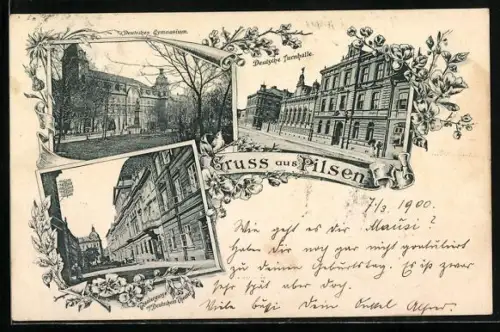 Deutsches Gymnasium.
Deutsche Turnhalle.
Gruss aus Pilsen
7/3 1900.
Wie geht es der Mausi?
Haben dir noch gar nicht gratulirt
zu deinem Geburtstag. Es ist zwar
sehr spät aber doch
Viele Bußi dein Onkel Alfred.